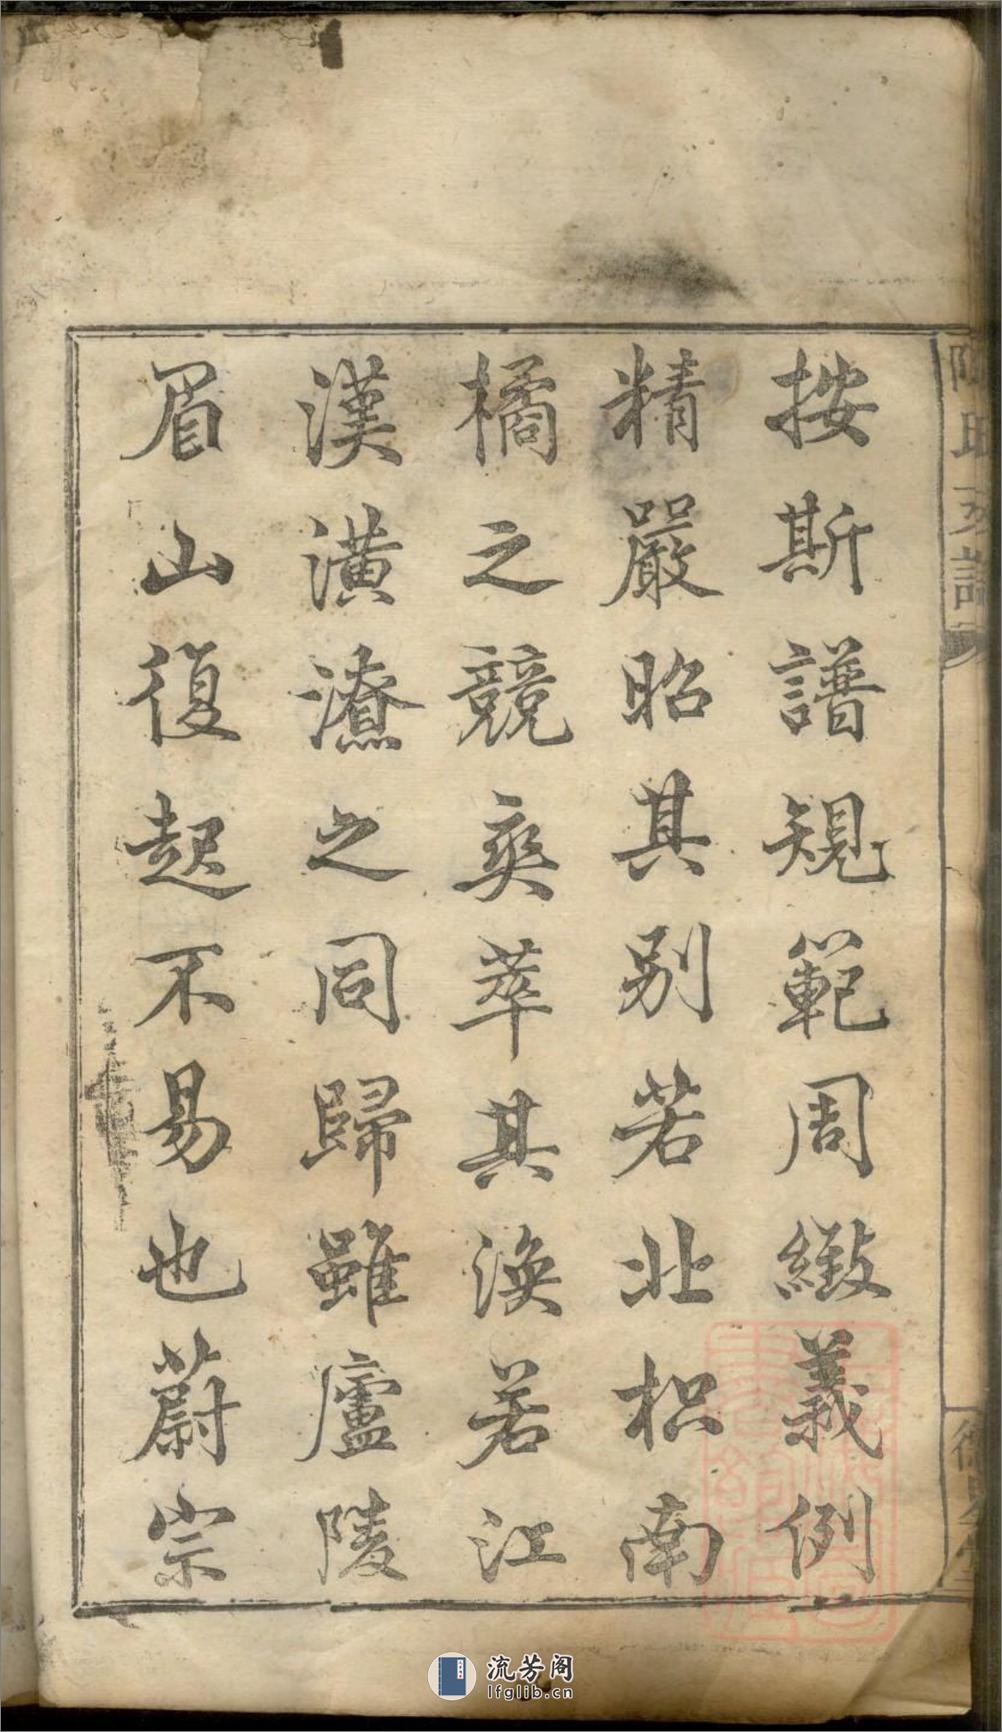 按斯譜規範周緻義例
精嚴昭其別若北枳南
橘之競爽萃其渙若江
漢潢潦之同歸雖廬陵
眉山復起不易也蔚宗
流芳阁
lfglib.cn